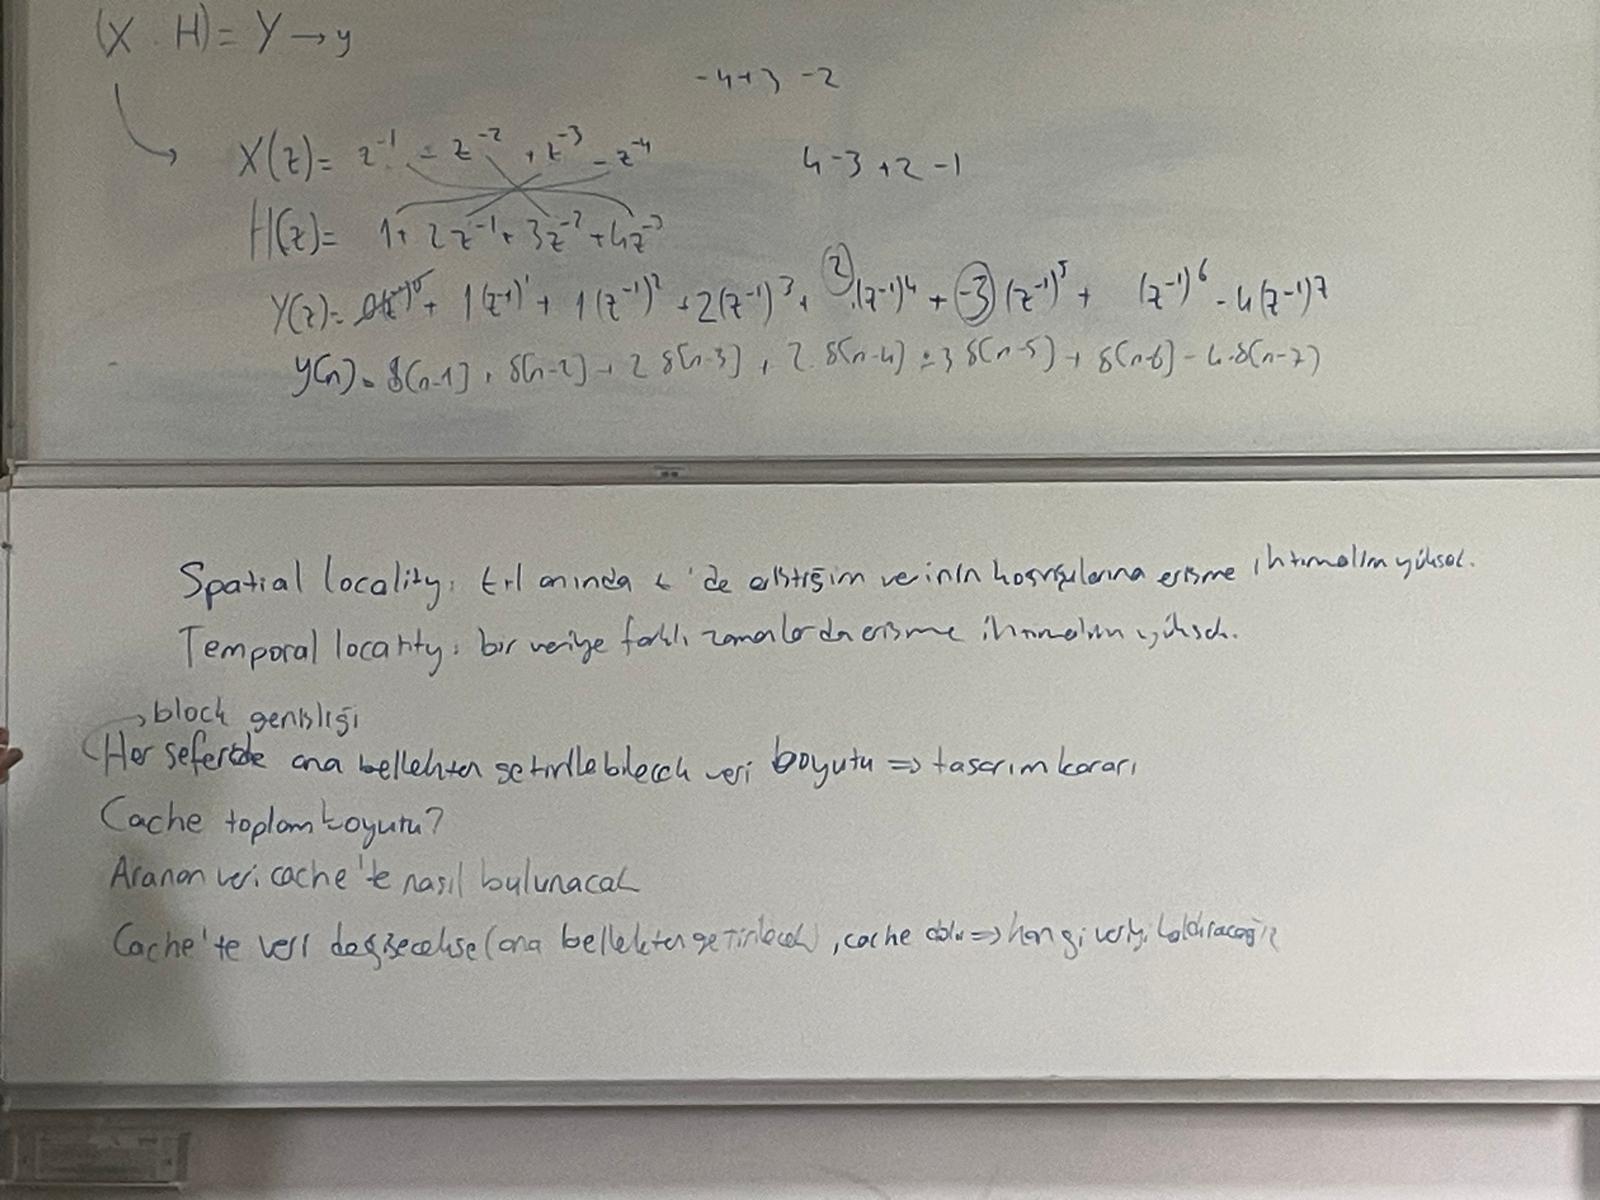 (X . H) = Y → y
-4+3 -2
X(z) = z⁻¹ - z⁻² + z⁻³ - z⁻⁴
4 -3 +2 -1
H(z) = 1 + 2z⁻¹ + 3z⁻² + 4z⁻³
Y(z) = + 1(z⁻¹)¹ + 1(z⁻¹)² + 2(z⁻¹)³ + 2.(z⁻¹)⁴ + -3(z⁻¹)⁵ + (z⁻¹)⁶ - 4(z⁻¹)⁷
y[n] = δ[n-1] + δ[n-2] + 2 δ[n-3] + 2. δ[n-4] - 3 δ[n-5] + δ[n-6] - 4.δ[n-7]
Spatial locality: t+1 anında t'de eriştiğim verinin komşularına erişme ihtimalim yüksek.
Temporal locality: bir veriye farklı zamanlarda erişme ihtimalim yüksek.
→ block genişliği
Her seferde ana bellekten getirilebilecek veri boyutu => tasarım kararı
Cache toplam boyutu?
Aranan veri cache'te nasıl bulunacak
Cache'te veri değişecekse (ana bellekten getirilecek), cache dolu => hangi veriyi kaldıracağız